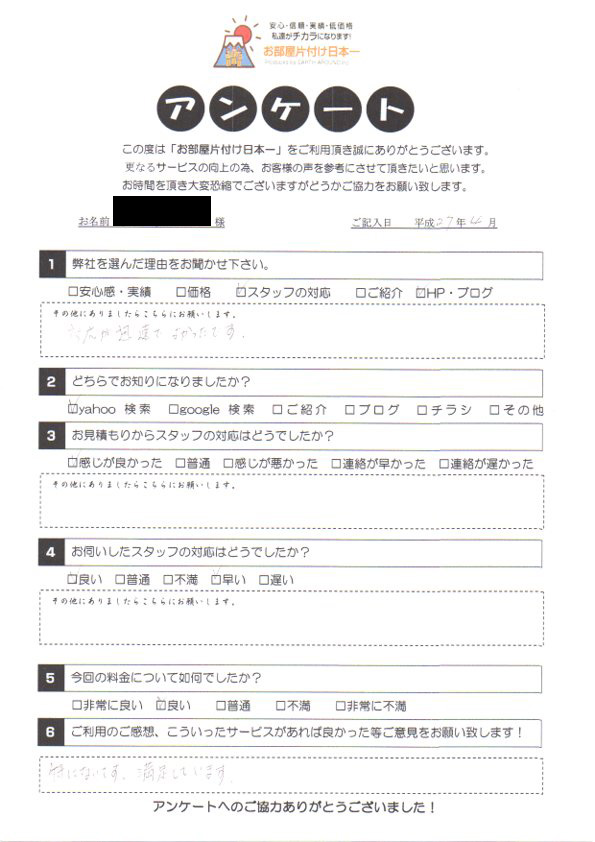 安心・信頼・実績・低価格
私達がチカラになります!
お部屋片付け日本一
Produced by EARTH AROUND inc
アンケート
この度は「お部屋片付け日本一」をご利用頂き誠にありがとうございます。
更なるサービスの向上の為、お客様の声を参考にさせて頂きたいと思います。
お時間を頂き大変恐縮でございますがどうかご協力をお願い致します。
お名前 様 ご記入日 平成27年 4月
1 弊社を選んだ理由をお聞かせ下さい。
□安心感・実績 □価格 ☑スタッフの対応 □ご紹介 ☑HP・ブログ
その他にありましたらこちらお願いします。
対応が迅速でよかったです。
2 どちらでお知りになりましたか?
☑yahoo 検索 □google 検索 □ご紹介 □ブログ □チラシ □その他
3 お見積もりからスタッフの対応はどうでしたか?
☑感じが良かった □普通 □感じが悪かった □連絡が早かった □連絡が遅かった
その他にありましたらこちらにお願いします。
4 お伺いしたスタッフの対応はどうでしたか?
☑良い □普通 □不満 ☑早い □遅い
その他にありましたらこちらにお願いします。
5 今回の料金について如何でしたか?
□非常に良い ☑良い □普通 □不満 □非常に不満
6 ご利用のご感想、こういったサービスがあれば良かった等ご意見をお願い致します!
特にないです、満足しています。
アンケートへのご協力ありがとうございました!